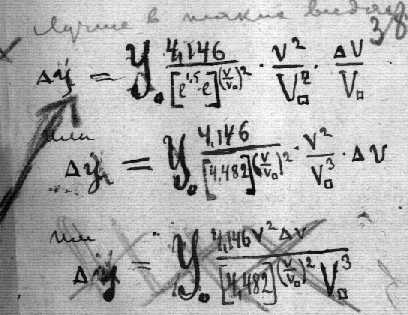 Лучше в таких видах
38
Δy = y₀ 4,146 / [e^1,5 · e]^(v/v₀)² · v²/V₀² · ΔV/V₀
или
Δy = y₀ 4,146 / [4,482]^(v/v₀)² · v²/V₀³ · Δv
или
Δy = y₀ 4,146 v² Δv / [4,482]^(v/v₀)² V₀³